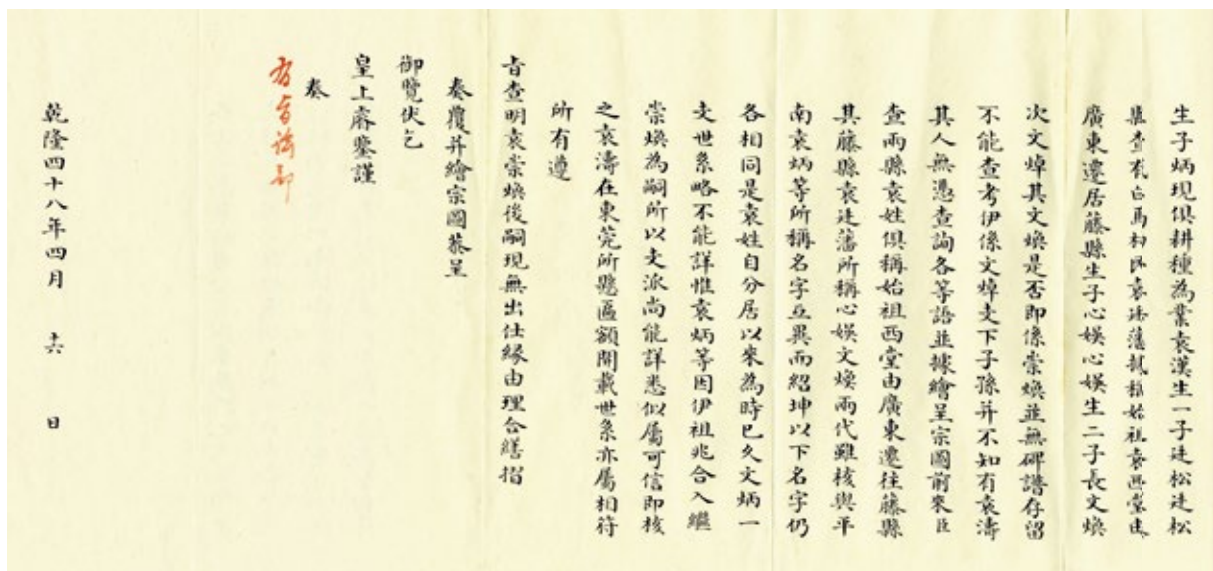 生子炳現俱耕種為業袁漢生一子廷松廷松
縣查有白馬村民袁廷藩執稱始祖袁西堂由
廣東遷居藤縣生子心娛心娛生二子長文煥
次文焯其文煥是否即係崇煥並無碑譜存留
不能查考伊係文焯支下子孫并不知有袁濤
其人無憑查詢各等語並據繪呈宗圖前來臣
查兩縣袁姓俱稱始祖西堂由廣東遷往藤縣
其藤縣袁廷藩所稱心娛文煥兩代雖核與平
南袁炳等所稱名字互異而紹坤以下名字仍
各相同是袁姓自分居以來為時已久文炳一
支世系略不能詳惟袁炳等因伊祖兆合入繼
崇煥為嗣所以支派尚能詳悉似屬可信即核
之袁濤在東莞所懸匾額開載世系亦屬相符
所有遵
旨查明袁崇煥後嗣現無出仕緣由理合繕摺
奏覆并繪宗圖恭呈
御覽伏乞
皇上睿鑒謹
奏
乾隆四十八年四月 十六 日